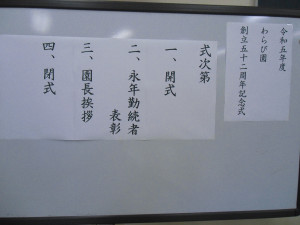 令和五年度
わらび園
創立五十二周年記念式
式次第
一、開式
二、永年勤続者
表彰
三、園長挨拶
四、閉式